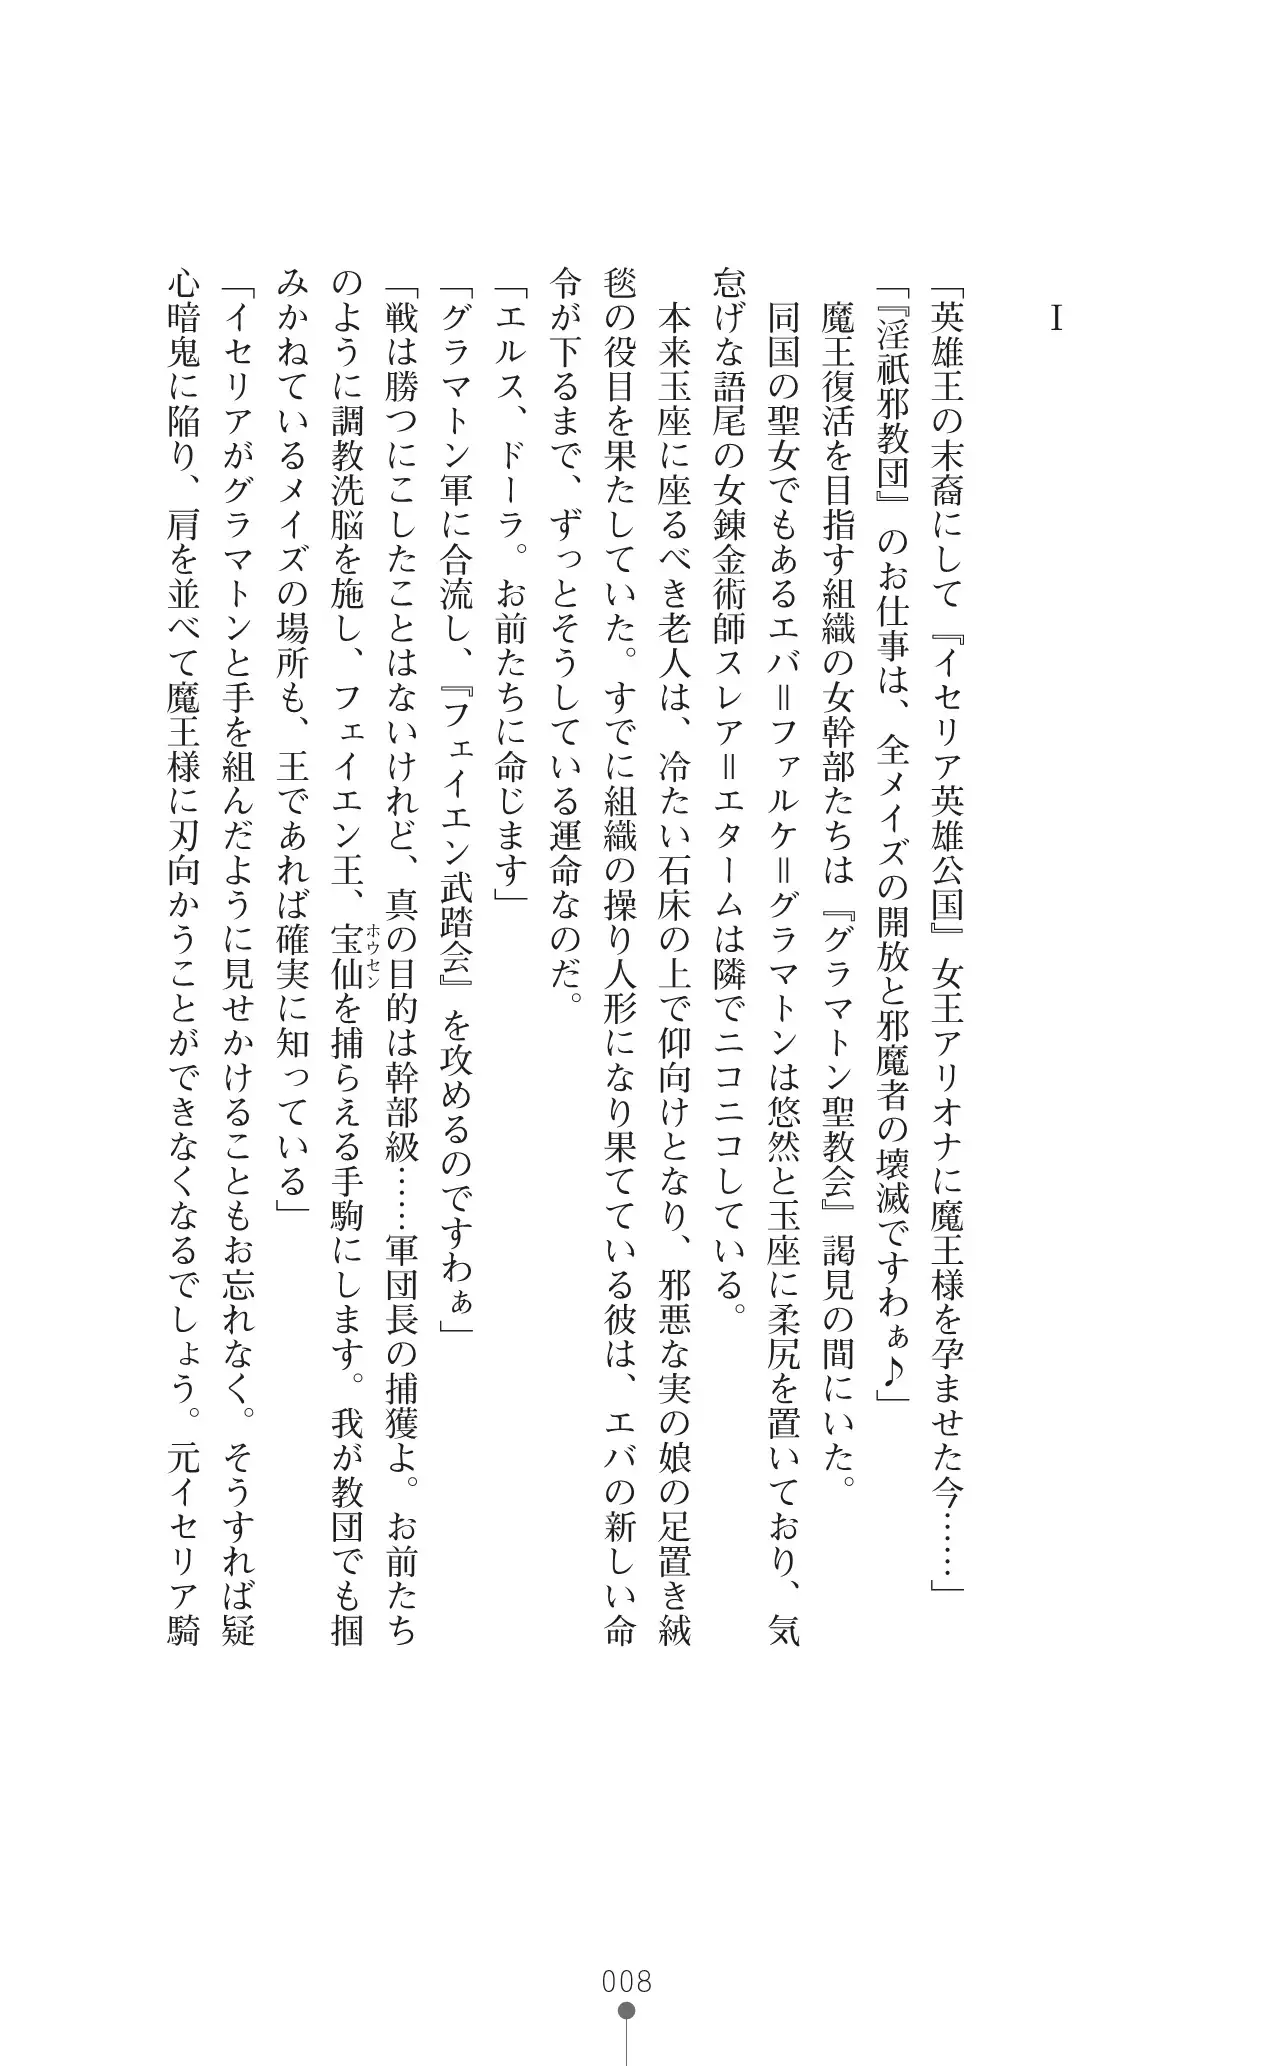 I
「英雄王の末裔にして『イセリア英雄公国』女王アリオナに魔王様を孕ませた今……」
「『淫祇邪教団』のお仕事は、全メイズの開放と邪魔者の壊滅ですわぁ♪」
魔王復活を目指す組織の女幹部たちは『グラマトン聖教会』謁見の間にいた。
同国の聖女でもあるエバ＝ファルケ＝グラマトンは悠然と玉座に柔尻を置いており、気
怠げな語尾の女錬金術師スレア＝エタームは隣でニコニコしている。
本来玉座に座るべき老人は、冷たい石床の上で仰向けとなり、邪悪な実の娘の足置き絨
毯の役目を果たしていた。すでに組織の操り人形になり果てている彼は、エバの新しい命
令が下るまで、ずっとそうしている運命なのだ。
「エルス、ドーラ。お前たちに命じます」
「グラマトン軍に合流し、『フェイエン武踏会』を攻めるのですわぁ」
「戦は勝つにこしたことはないけれど、真の目的は幹部級……軍団長の捕獲よ。お前たち
のように調教洗脳を施し、フェイエン王、宝仙を捕らえる手駒にします。我が教団でも掴
ホウセン
みかねているメイズの場所も、王であれば確実に知っている」
「イセリアがグラマトンと手を組んだように見せかけることもお忘れなく。そうすれば疑
心暗鬼に陥り、肩を並べて魔王様に刃向かうことができなくなるでしょう。元イセリア騎
008